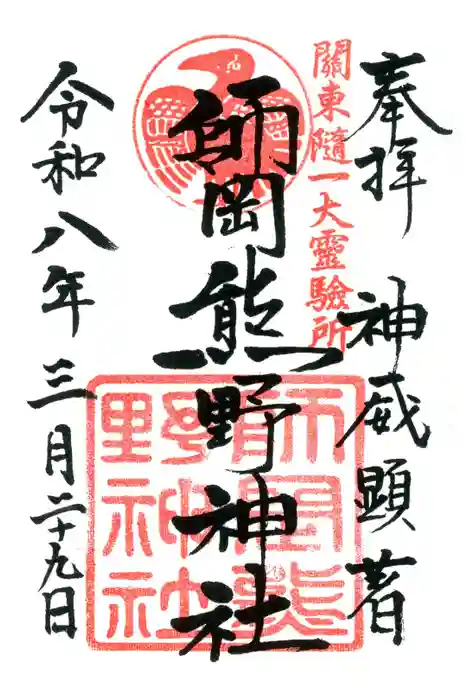 奉拝
神威顕著
關東隨一大靈驗所
師岡熊野神社
師岡熊野神社
令和八年三月二十九日